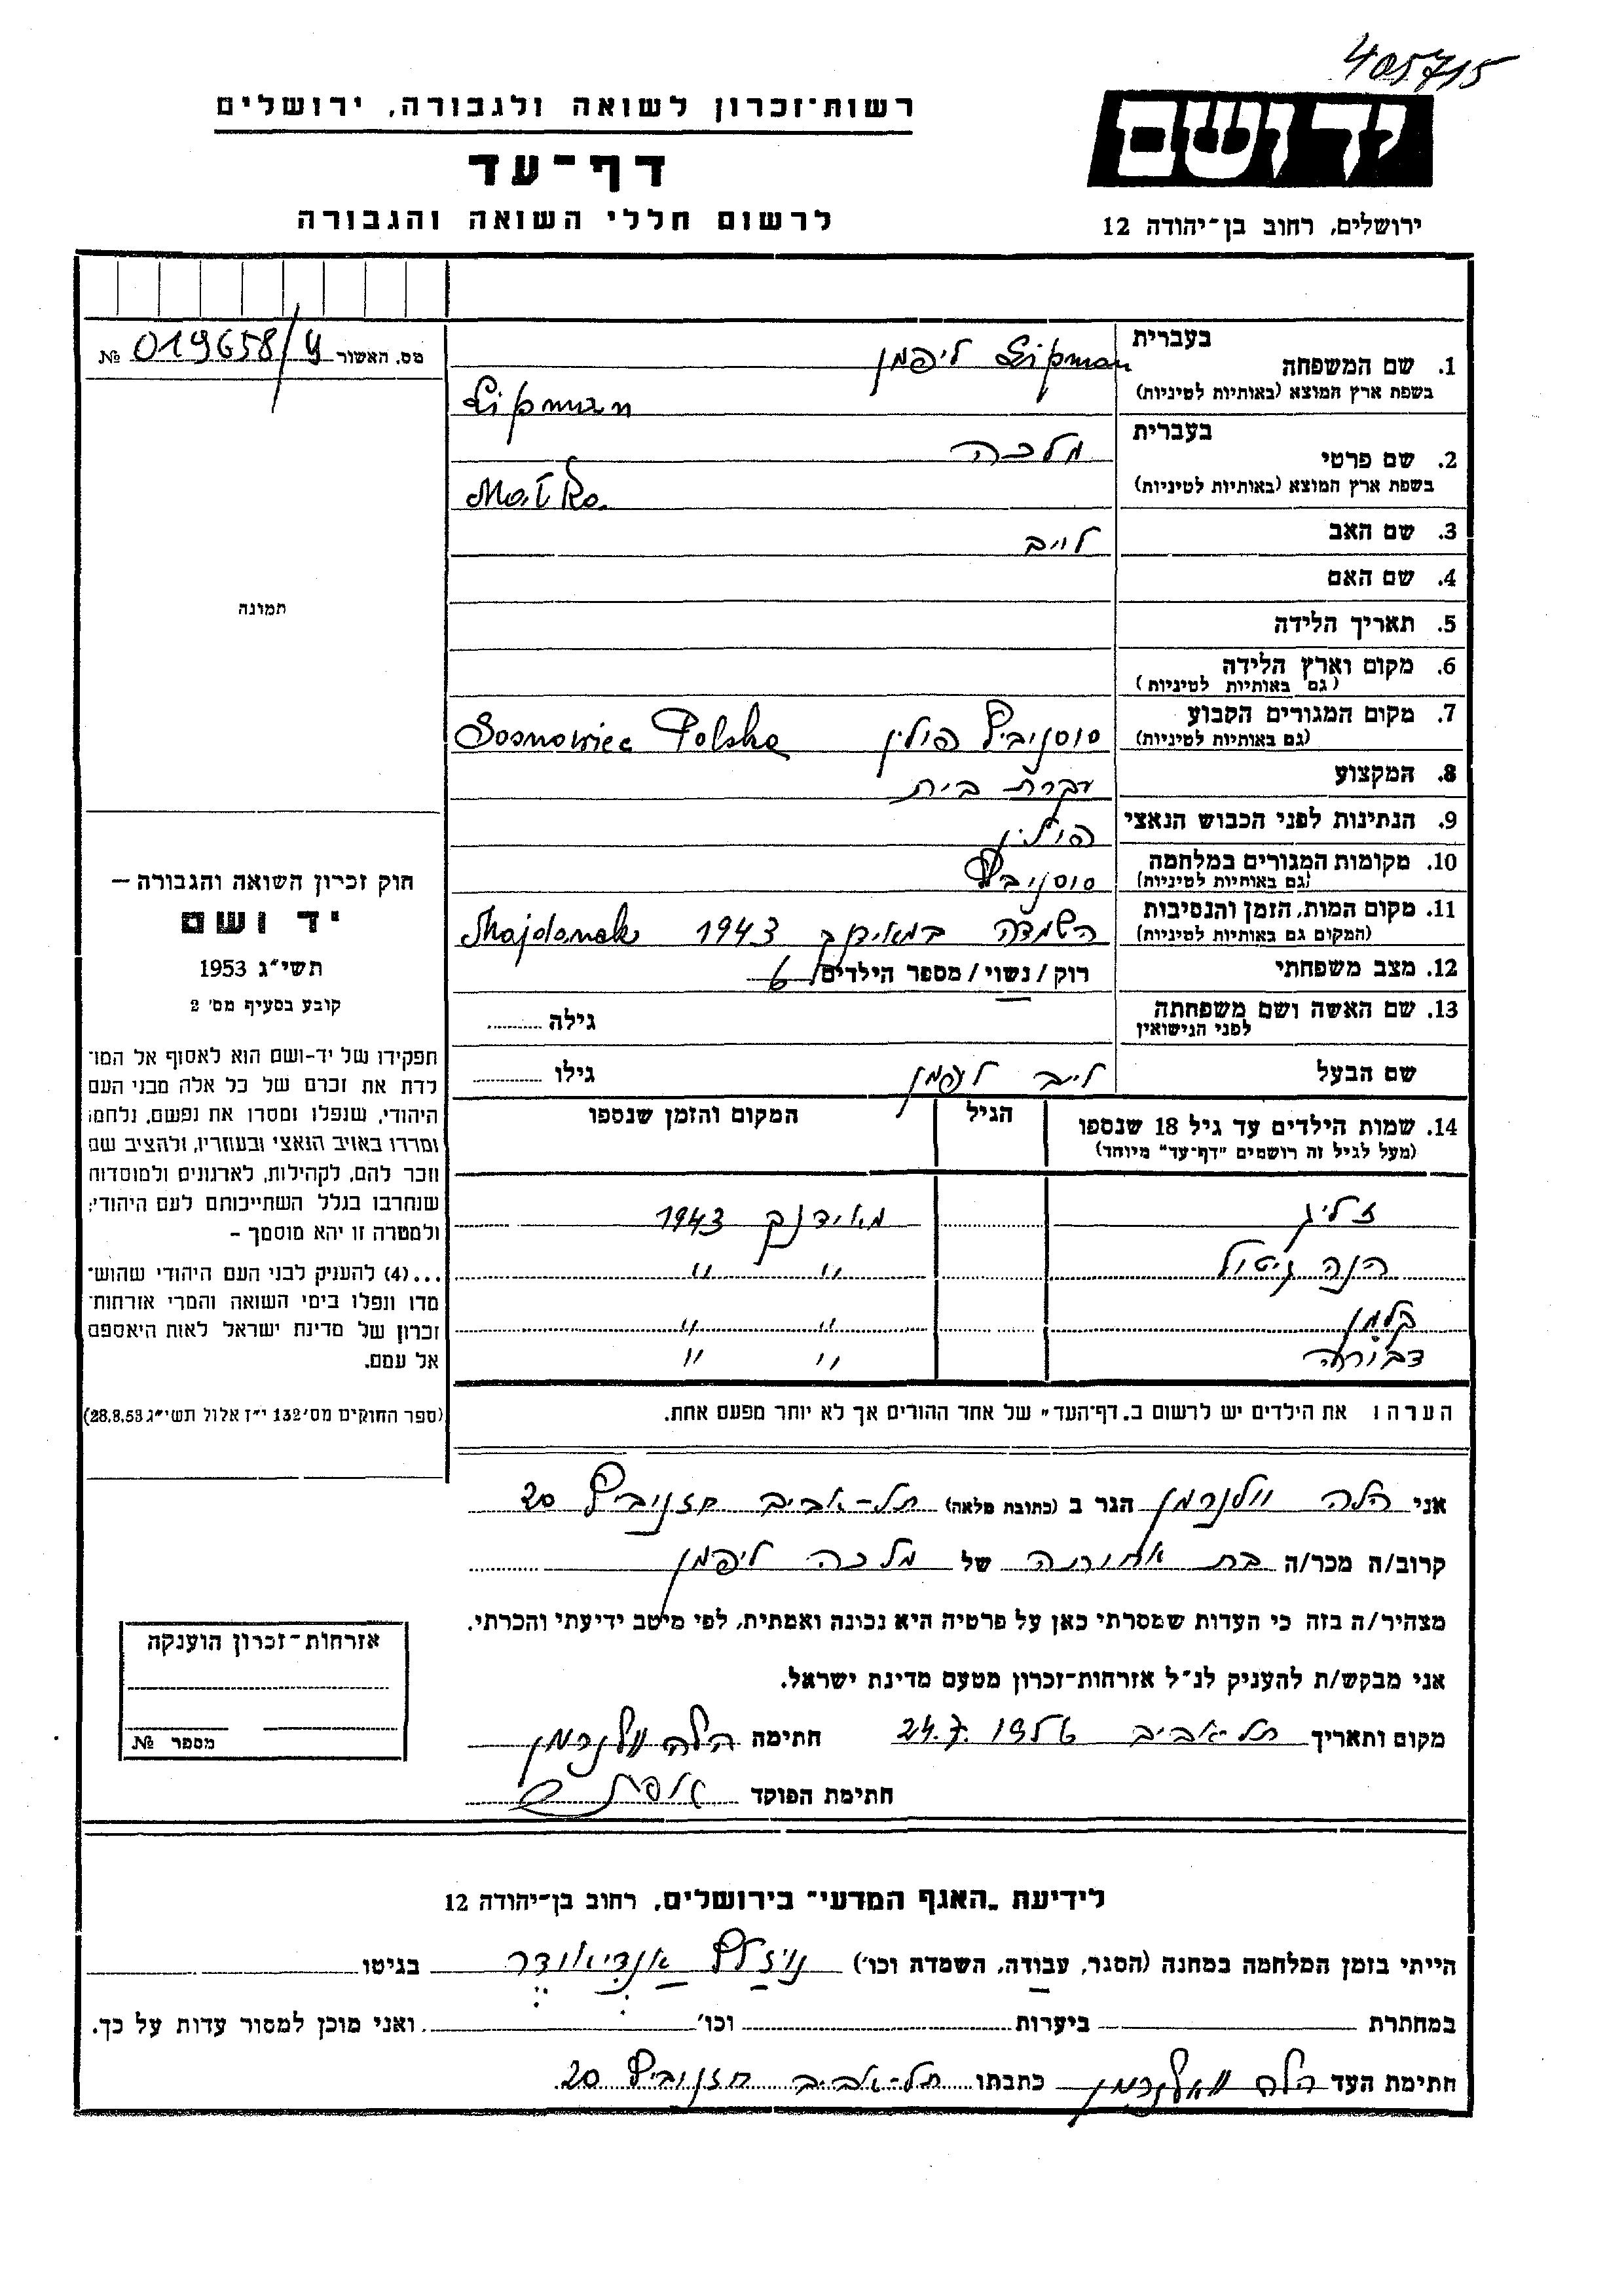 405715
רשות־זכרון לשואה ולגבורה, ירושלים
יד ושם
דף־עד
לרשום חללי השואה והגבורה
ירושלים, רחוב בן־יהודה 12
מס. האשור 019658/ № 
1. שם המשפחה בעברית ליפמן Lipman
בשפת ארץ המוצא (באותיות לטיניות) Lipman
2. שם פרטי בעברית מלכה
בשפת ארץ המוצא (באותיות לטיניות) Malka
3. שם האב לייב
4. שם האם
5. תאריך הלידה
6. מקום וארץ הלידה
(גם באותיות לטיניות)
7. מקום המגורים הקבוע סוסנוביץ פולין Sosnowiec Polska
(גם באותיות לטיניות)
8. המקצוע עקרת בית
9. הנתינות לפני הכבוש הנאצי פולין
10. מקומות המגורים במלחמה סוסנוביץ
(גם באותיות לטיניות)
11. מקום המות, הזמן והנסיבות השמדה במאידנק 1943 Majdanek
(המקום גם באותיות לטיניות)
12. מצב משפחתי רוק / נשוי / מספר הילדים 6
13. שם האשה ושם משפחתה גילה
לפני הנישואין
שם הבעל לייב ליפמן גילו
14. שמות הילדים עד גיל 18 שנספו הגיל המקום והזמן שנספו
(מעל לגיל זה רושמים "דף־עד" מיוחד)
זליג מאידנק 1943
הנה גיטול " "
קלמן " "
דבורה " "
הערה: את הילדים יש לרשום ב„דף־העד" של אחד ההורים אך לא יותר מפעם אחת.
תמונה
חוק זכרון השואה והגבורה —
יד ושם
תשי"ג 1953
קובע בסעיף מס' 2
תפקידו של יד-ושם הוא לאסוף אל המו־
לדת את זכרם של כל אלה מבני העם
היהודי, שנפלו ומסרו את נפשם, נלחמו
ומרדו באויב הנאצי ובעוזריו, ולהציב שם
וזכר להם, לקהילות, לארגונים ולמוסדות
שנחרבו בגלל השתייכותם לעם היהודי;
ולמטרה זו יהא מוסמך –
...(4) להעניק לבני העם היהודי שהוש־
מדו ונפלו בימי השואה והמרי אזרחות־
זכרון של מדינת ישראל לאות היאספם
אל עמם.
(ספר החוקים מס' 132 י"ז אלול תשי"ג 28.8.53)
אני הלה הגר ב (כתובת מלאה) תל-אביב חזנוביץ 20
קרוב/ה מכר/ה בת אחותה של מלכה ליפמן
מצהיר/ה בזה כי העדות שמסרתי כאן על פרטיה היא נכונה ואמתית, לפי מיטב ידיעתי והכרתי.
אני מבקש/ת להעניק לנ"ל אזרחות־זכרון מטעם מדינת ישראל.
מקום ותאריך תל-אביב 24.7.1956 חתימה הלה
חתימת הפוקד
אזרחות־זכרון הוענקה
מספר №
לידיעת „האגף המדעי" בירושלים, רחוב בן־יהודה 12
הייתי בזמן המלחמה במחנה (הסגר, עבודה, השמדה וכו') בגיטו
במחתרת ביערות וכו' ואני מוכן למסור עדות על כך.
חתימת העד הלה כתבתו תל-אביב חזנוביץ 20